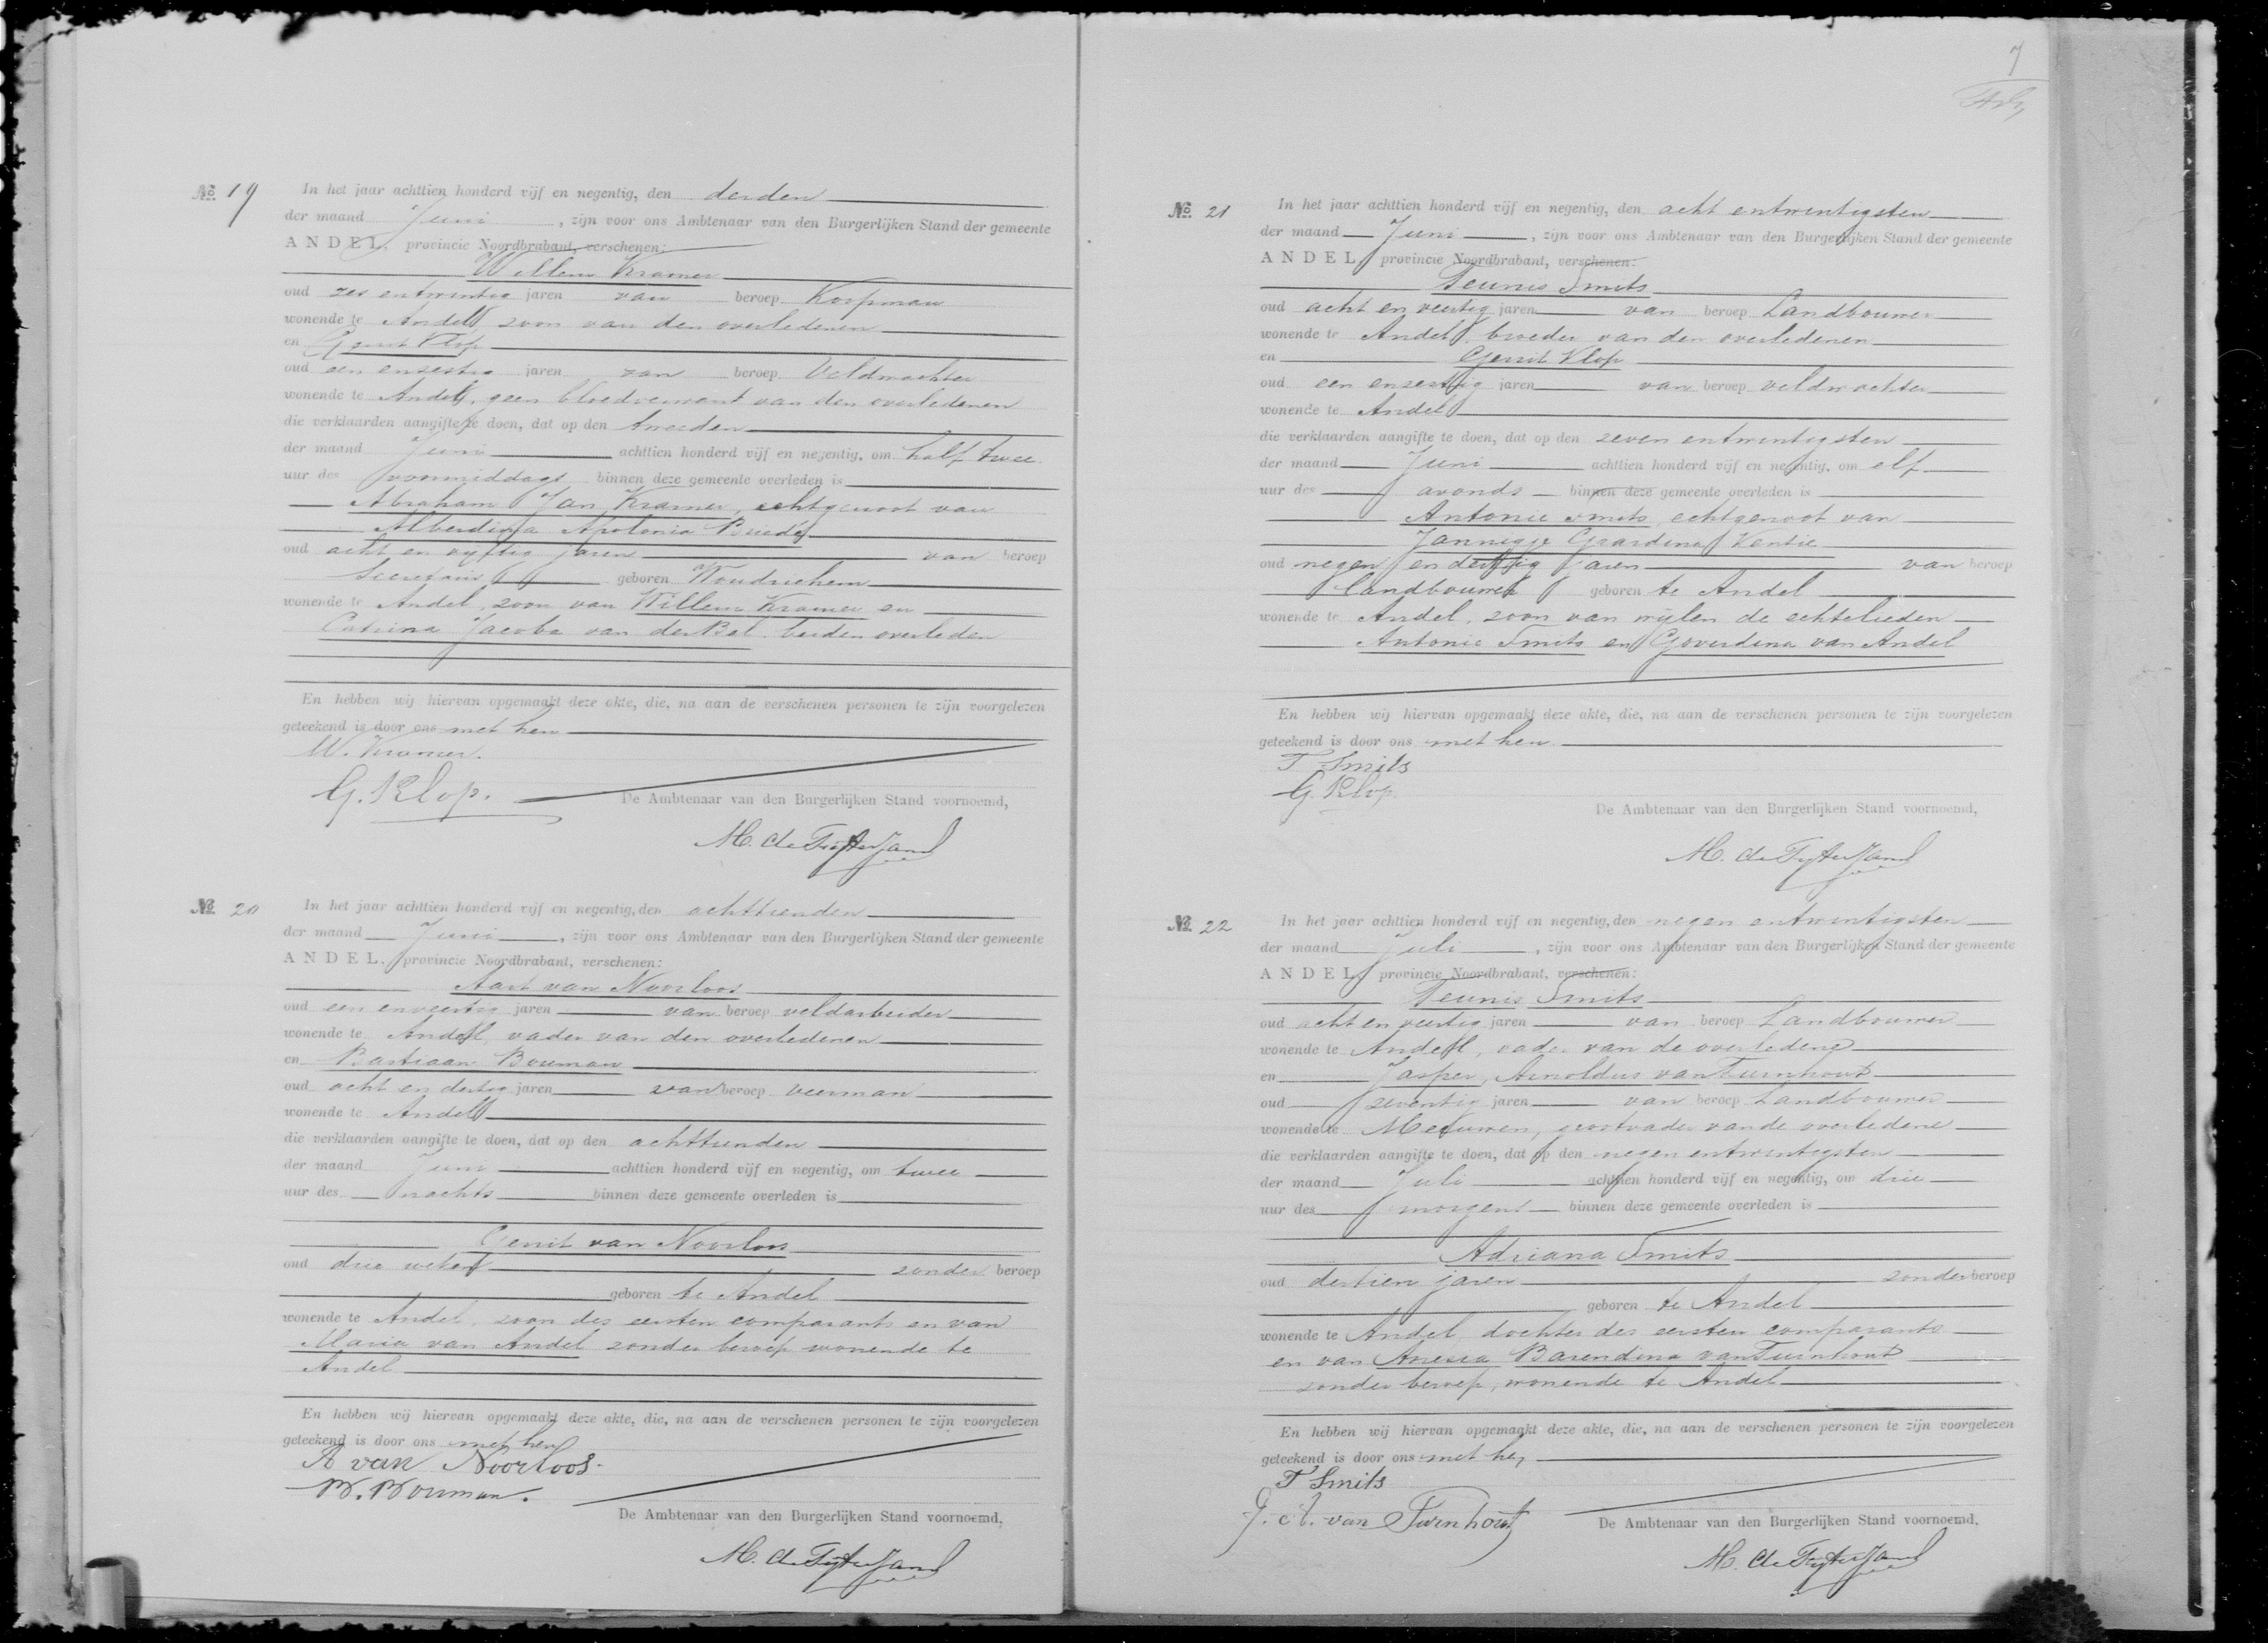 7
№ 19
In het jaar achttien honderd vijf en negentig, den derden
der maand Juni, zijn voor ons Ambtenaar van den Burgerlijken Stand der gemeente
ANDEL, provincie Noordbrabant, verschenen:
Willem Kramer
oud zes en twintig jaren van beroep Koopman
wonende te Andel, zoon van den overledenen
en Gerrit Klop
oud een en zestig jaren van beroep Veldwachter
wonende te Andel, geen bloedverwant van den overledenen
die verklaarden aangifte te doen, dat op den tweeden
der maand Juni achttien honderd vijf en negentig, om half twee
uur des voormiddags binnen deze gemeente overleden is
Abraham Jan Kramer, echtgenoot van
Alberdina Apolonia
oud acht en vijftig jaren van beroep
Secretaris geboren Woudrichem
wonende te Andel, zoon van Willem Kramer en
Catrina Jacoba van der Bel beiden overleden
En hebben wij hiervan opgemaakt deze akte, die, na aan de verschenen personen te zijn voorgelezen
geteekend is door ons met hen
W. Kramer.
G. Klop.
De Ambtenaar van den Burgerlijken Stand voornoemd,
M. de Fijter Jand
№ 20
In het jaar achttien honderd vijf en negentig, den achttienden
der maand Juni, zijn voor ons Ambtenaar van den Burgerlijken Stand der gemeente
ANDEL, provincie Noordbrabant, verschenen:
Aart van Noorloos
oud een en veertig jaren van beroep veldarbeider
wonende te Andel, vader van den overledenen
en Bastiaan Bouman
oud acht en dertig jaren van beroep veerman
wonende te Andel
die verklaarden aangifte te doen, dat op den achttienden
der maand Juni achttien honderd vijf en negentig, om twee
uur des nachts binnen deze gemeente overleden is
Gerrit van Noorloos
oud drie weken zonder beroep
geboren te Andel
wonende te Andel, zoon des eersten comparants en van
Maria van Andel zonder beroep wonende te
Andel
En hebben wij hiervan opgemaakt deze akte, die, na aan de verschenen personen te zijn voorgelezen
geteekend is door ons met hen
A van Noorloos
B. Bouman.
De Ambtenaar van den Burgerlijken Stand voornoemd,
M. de Fijter Jand
№ 21
In het jaar achttien honderd vijf en negentig, den acht en twintigsten
der maand Juni, zijn voor ons Ambtenaar van den Burgerlijken Stand der gemeente
ANDEL, provincie Noordbrabant, verschenen:
Teunis Smits
oud acht en veertig jaren van beroep Landbouwer
wonende te Andel, broeder van den overledenen
en Gerrit Klop
oud een en zestig jaren van beroep veldwachter
wonende te Andel
die verklaarden aangifte te doen, dat op den zeven en twintigsten
der maand Juni achttien honderd vijf en negentig, om elf
uur des avonds binnen deze gemeente overleden is
Antonie Smits, echtgenoot van
Jannigje Gerardina
oud negen en dertig jaren van beroep
landbouwer geboren te Andel
wonende te Andel, zoon van wijlen de echtelieden
Antonie Smits en Goverdina van Andel
En hebben wij hiervan opgemaakt deze akte, die, na aan de verschenen personen te zijn voorgelezen
geteekend is door ons met hen
T Smits
G. Klop
De Ambtenaar van den Burgerlijken Stand voornoemd,
M. de Fijter Jand
№ 22
In het jaar achttien honderd vijf en negentig, den negen en twintigsten
der maand Juli, zijn voor ons Ambtenaar van den Burgerlijken Stand der gemeente
ANDEL, provincie Noordbrabant, verschenen:
Teunis Smits
oud acht en veertig jaren van beroep Landbouwer
wonende te Andel, vader van de overledene
en Jasper Arnoldus van Turnhout
oud zeventig jaren van beroep Landbouwer
wonende te Meeuwen, grootvader van de overledene
die verklaarden aangifte te doen, dat op den negen en twintigsten
der maand Juli achttien honderd vijf en negentig, om drie
uur des morgens binnen deze gemeente overleden is
Adriana Smits
oud dertien jaren zonder beroep
geboren te Andel
wonende te Andel dochter des eersten comparants
en van Anesca Barendina van Turnhout
zonder beroep, wonende te Andel
En hebben wij hiervan opgemaakt deze akte, die, na aan de verschenen personen te zijn voorgelezen
geteekend is door ons met hen
T Smits
J. A. van Turnhout
De Ambtenaar van den Burgerlijken Stand voornoemd,
M. de Fijter Jand